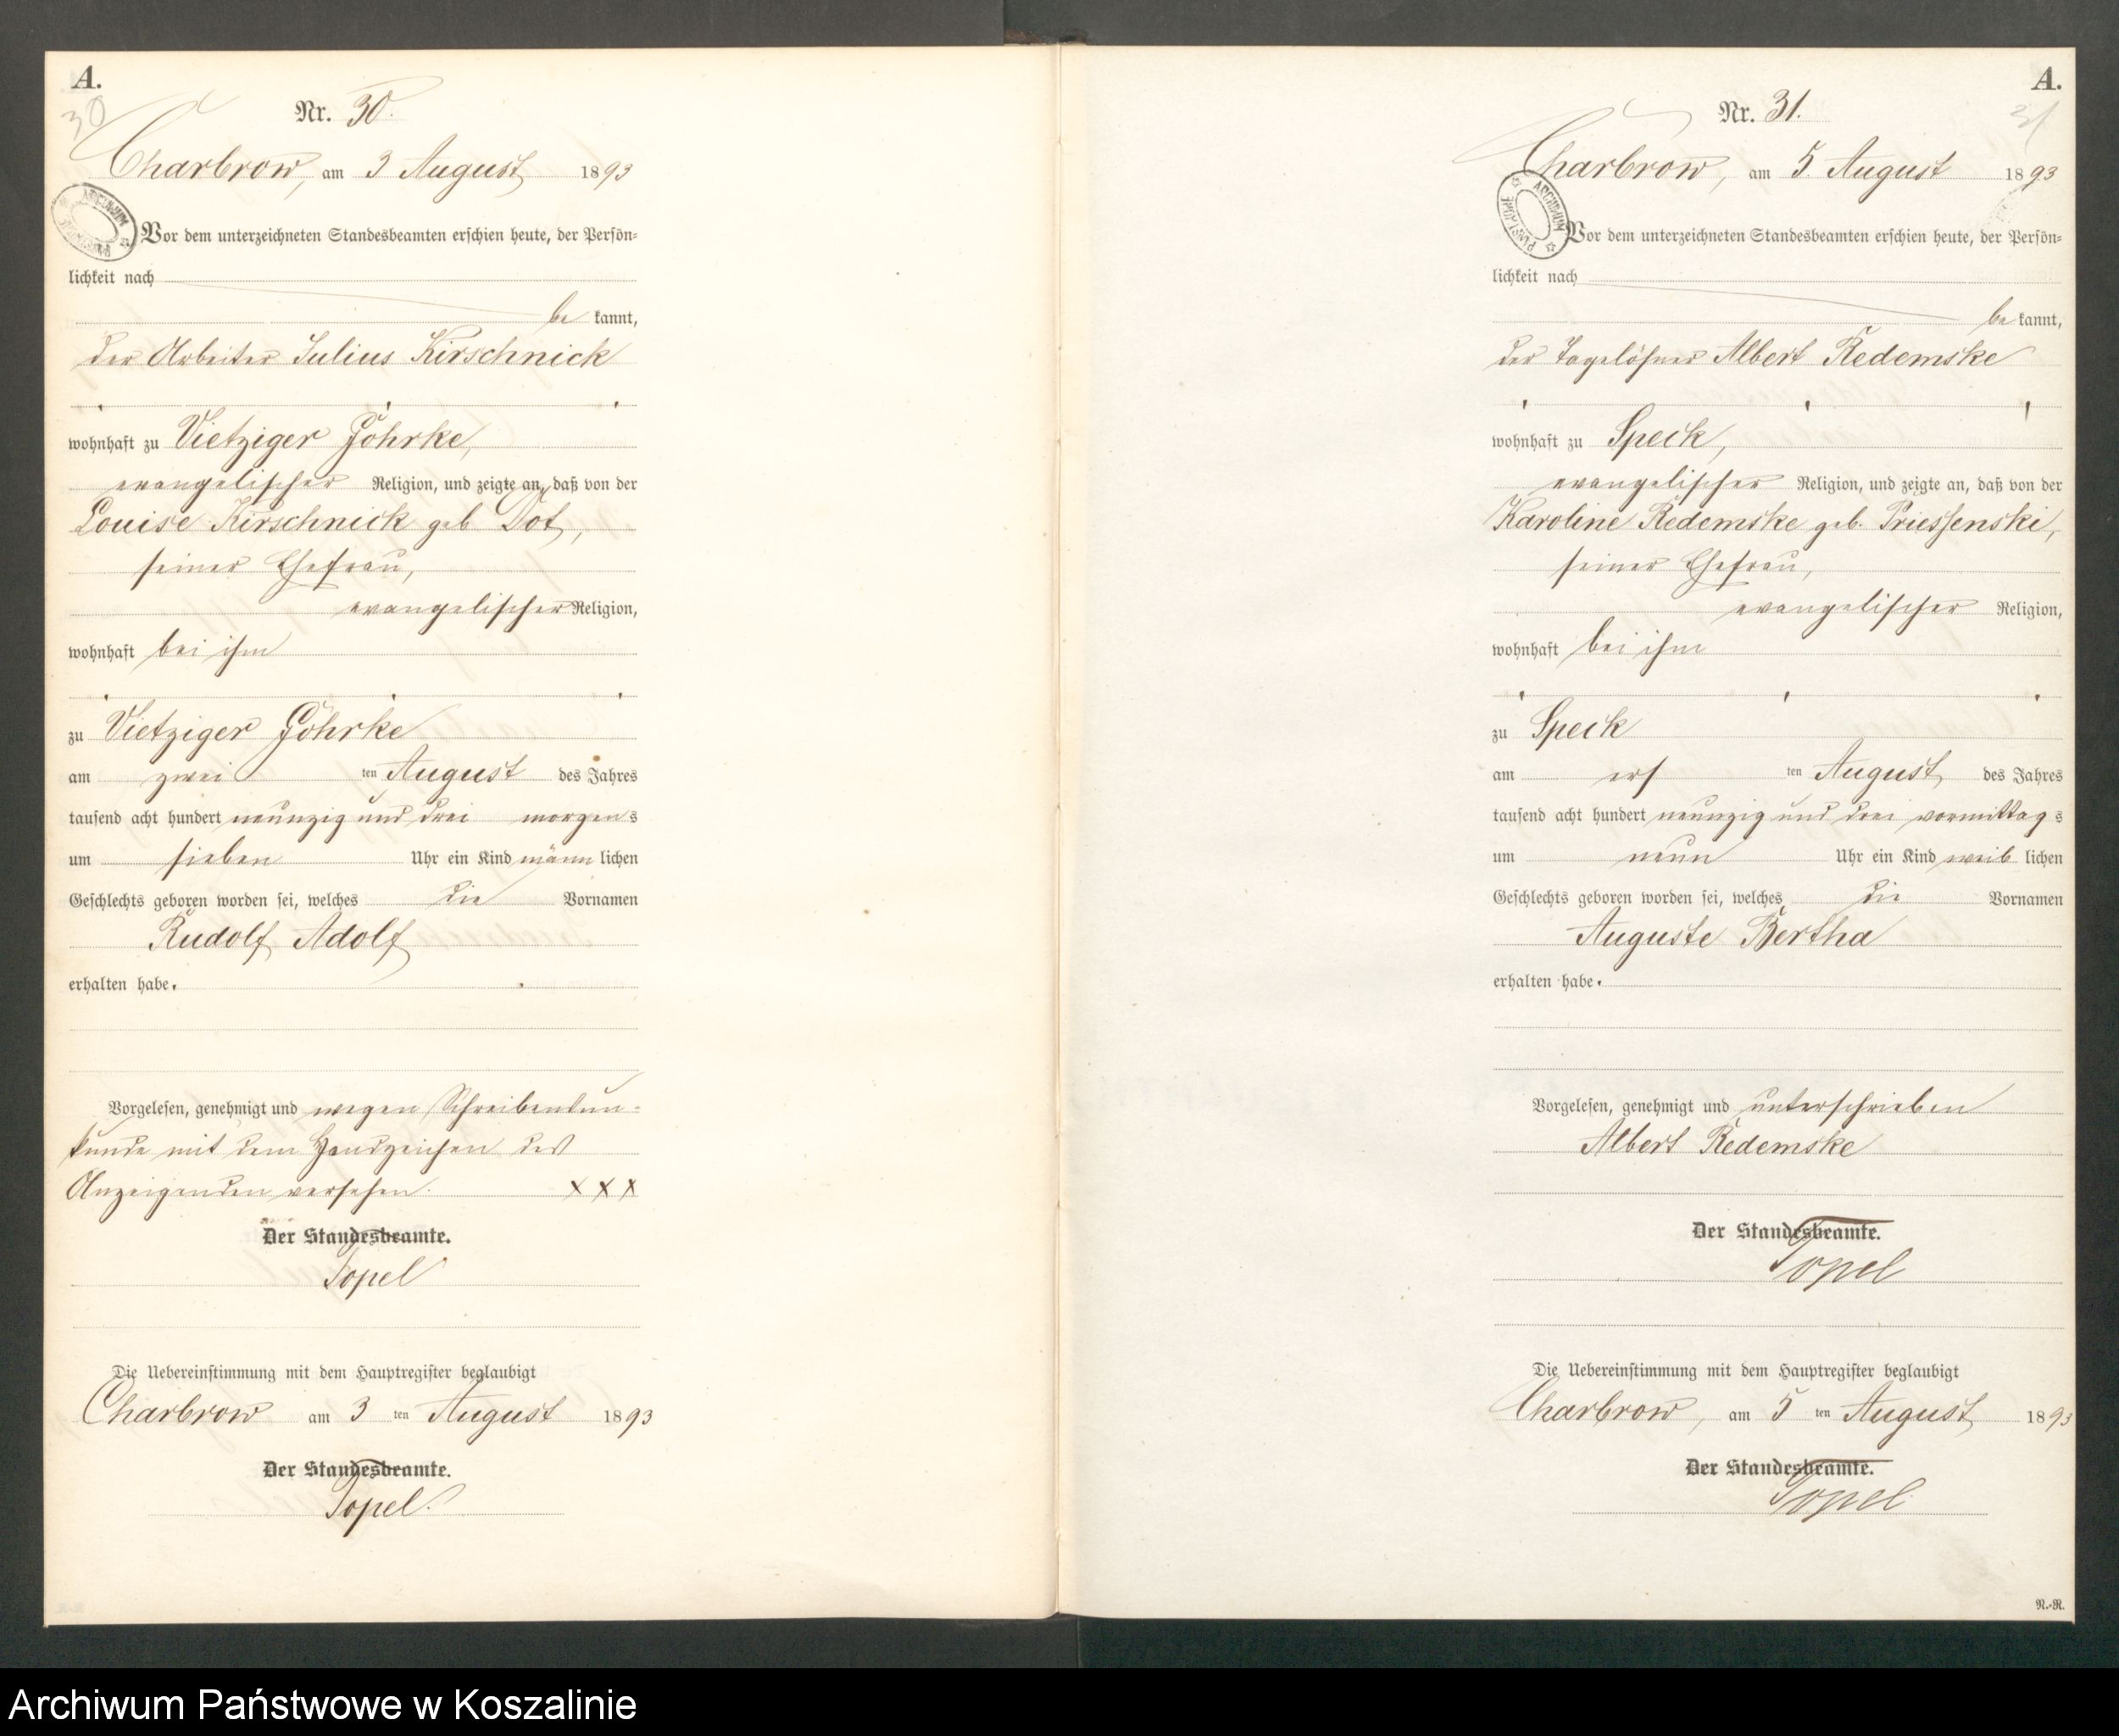 A.
30
Nr. 30.
Charbrow, am 3 August 1893
Vor dem unterzeichneten Standesbeamten erschien heute, der Persön-
lichkeit nach
be kannt,
der Arbeiter Julius Kirschnick
wohnhaft zu Vietziger Föhrke,
evangelischer Religion, und zeigte an, daß von der
Louise Kirschnick geb Dot,
seiner Ehefrau,
evangelischer Religion,
wohnhaft bei ihm
zu Vietziger Föhrke
am zwei ten August des Jahres
tausend acht hundert neunzig und drei morgens
um sieben Uhr ein Kind männ lichen
Geschlechts geboren worden sei, welches die Vornamen
Rudolf Adolf
erhalten habe.
Vorgelesen, genehmigt und wegen Schreibensun-
kunde mit dem Handzeichen des
Anzeigenden versehen. XXX
Der Standesbeamte.
Topel
Die Uebereinstimmung mit dem Hauptregister beglaubigt
Charbrow am 3 ten August 1893
Der Standesbeamte.
Topel.
A.
31
Nr. 31.
Charbrow, am 5. August 1893
ARCHIWUM
Vor dem unterzeichneten Standesbeamten erschien heute, der Persön-
lichkeit nach
be kannt,
der Tagelöhner Albert Redemske
wohnhaft zu Speck,
evangelischer Religion, und zeigte an, daß von der
Karoline Redemske geb. Priessenski,
seiner Ehefrau,
evangelischer Religion,
wohnhaft bei ihm
zu Speck
am ers ten August des Jahres
tausend acht hundert neunzig und drei vormittag s
um neun Uhr ein Kind weib lichen
Geschlechts geboren worden sei, welches die Vornamen
Auguste Bertha
erhalten habe.
Vorgelesen, genehmigt und unterschrieben
Albert Redemske
Der Standesbeamte.
Topel
Die Uebereinstimmung mit dem Hauptregister beglaubigt
Charbrow, am 5 ten August 1893
Der Standesbeamte.
Topel
N.-R.
Archiwum Państwowe w Koszalinie